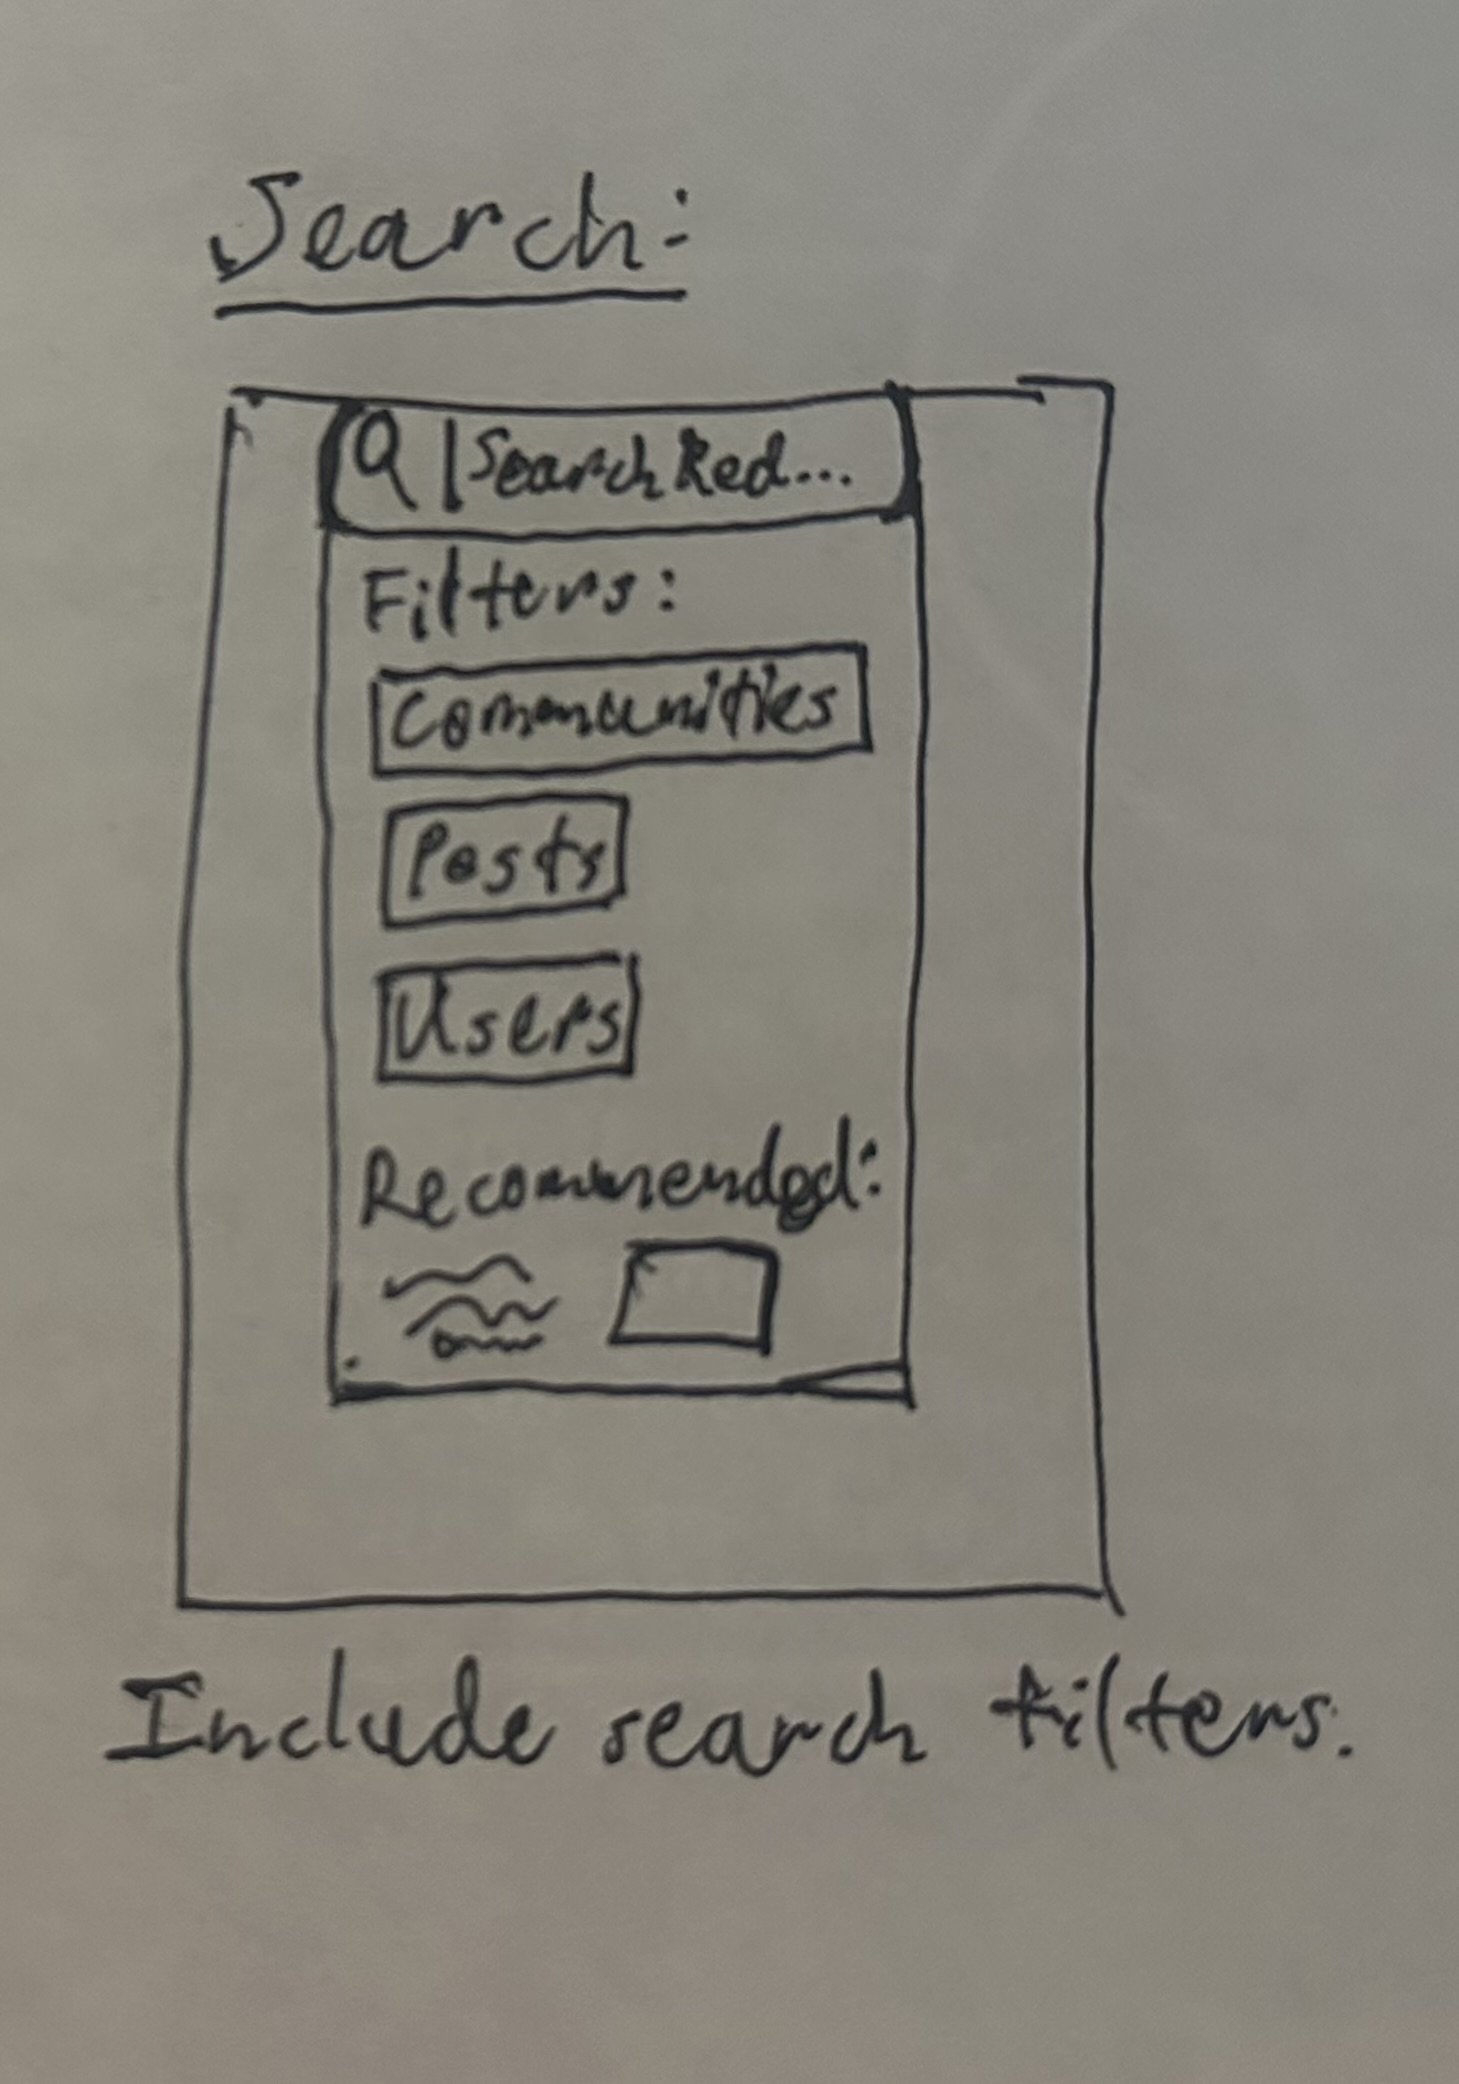 Search:
Search Red...
Filters:
Communities
Posts
Users
Recommended:
Include search filters.